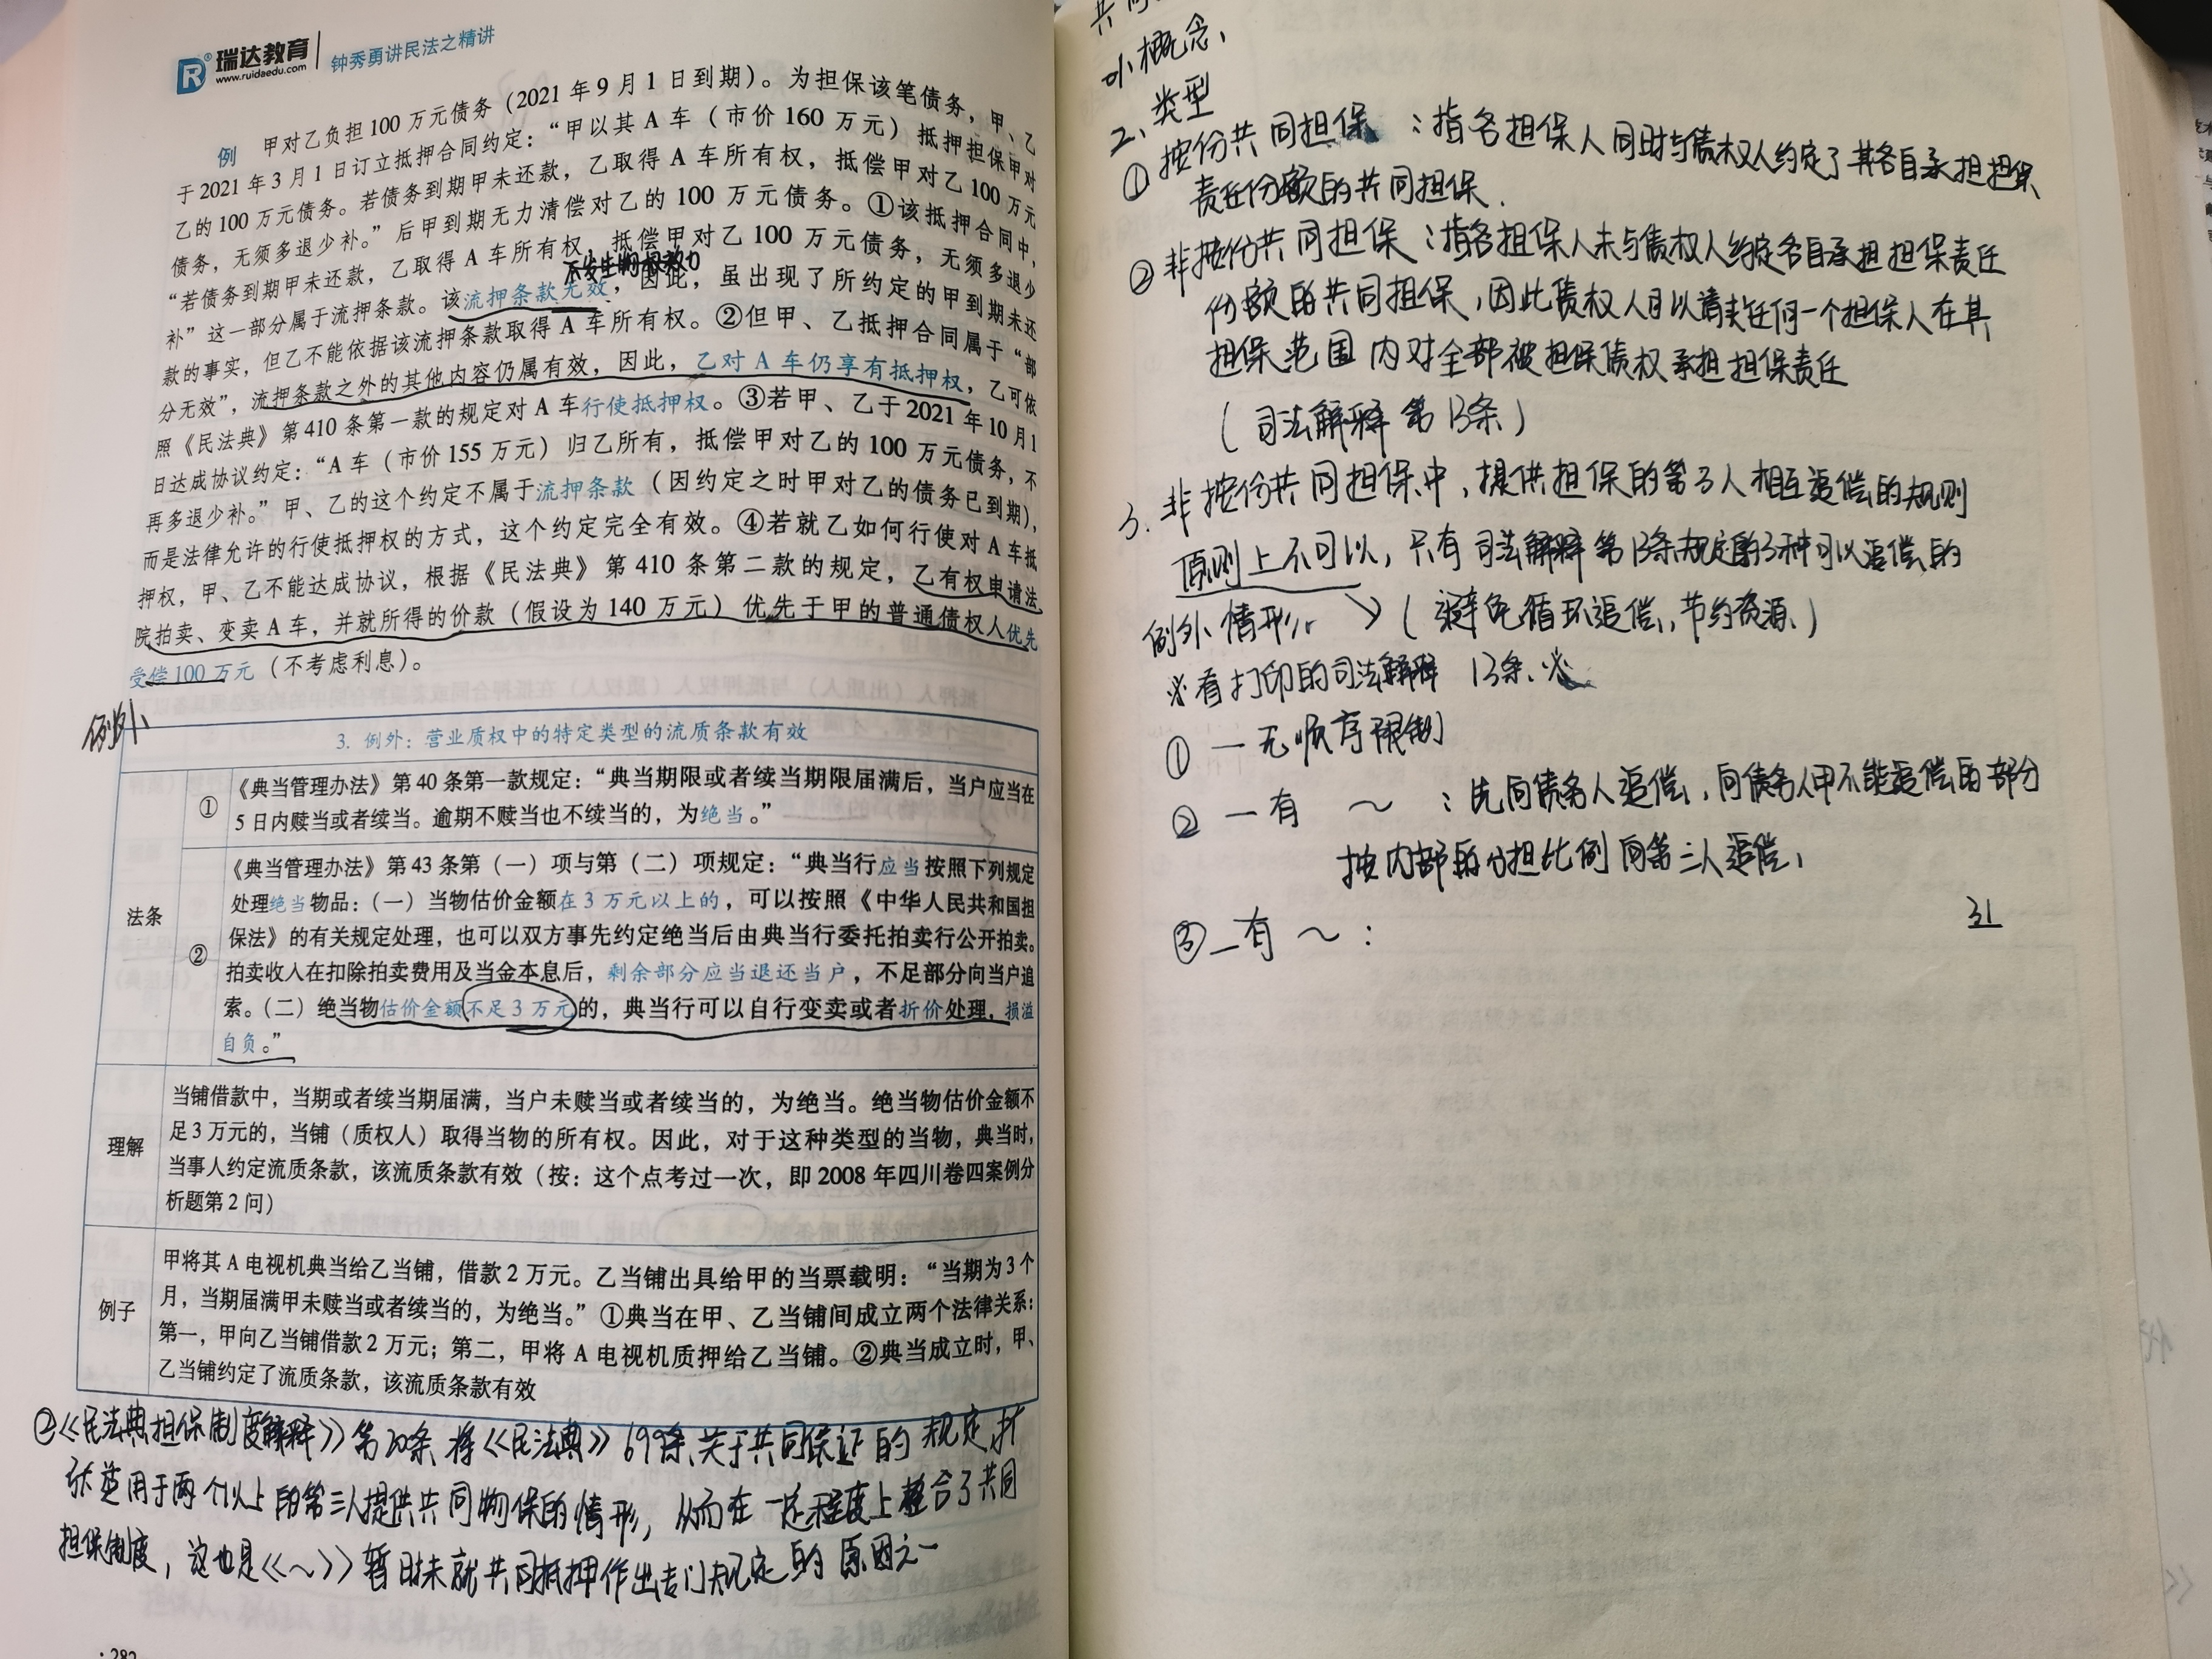 瑞达教育
www.ruidaedu.com
钟秀勇讲民法之精讲
例 甲对乙负担100万元债务（2021年9月1日到期）。为担保该笔债务，甲、乙
于2021年3月1日订立抵押合同约定：“甲以其A车（市价160万元）抵押担保甲对
乙的100万元债务。若债务到期甲未还款，乙取得A车所有权，抵偿甲对乙100万元
债务，无须多退少补。”后甲到期无力清偿对乙的100万元债务。①该抵押合同中，
“若债务到期甲未还款，乙取得A车所有权，抵偿甲对乙100万元债务，无须多退少
不发生物权效力
补”这一部分属于流押条款。该流押条款无效，因此，虽出现了所约定的甲到期未还
款的事实，但乙不能依据该流押条款取得A车所有权。②但甲、乙抵押合同属于“部
分无效”，流押条款之外的其他内容仍属有效，因此，乙对A车仍享有抵押权，乙可依
照《民法典》第410条第一款的规定对A车行使抵押权。③若甲、乙于2021年10月1
日达成协议约定：“A车（市价155万元）归乙所有，抵偿甲对乙的100万元债务，不
再多退少补。”甲、乙的这个约定不属于流押条款（因约定之时甲对乙的债务已到期），
而是法律允许的行使抵押权的方式，这个约定完全有效。④若就乙如何行使对A车抵
押权，甲、乙不能达成协议，根据《民法典》第410条第二款的规定，乙有权申请法
院拍卖、变卖A车，并就所得的价款（假设为140万元）优先于甲的普通债权人优先
受偿100万元（不考虑利息）。
例外
3. 例外：营业质权中的特定类型的流质条款有效
法条
①
《典当管理办法》第40条第一款规定：“典当期限或者续当期限届满后，当户应当在
5日内赎当或者续当。逾期不赎当也不续当的，为绝当。”
②
《典当管理办法》第43条第（一）项与第（二）项规定：“典当行应当按照下列规定
处理绝当物品：（一）当物估价金额在3万元以上的，可以按照《中华人民共和国担
保法》的有关规定处理，也可以双方事先约定绝当后由典当行委托拍卖行公开拍卖。
拍卖收入在扣除拍卖费用及当金本息后，剩余部分应当退还当户，不足部分向当户追
索。（二）绝当物估价金额不足3万元的，典当行可以自行变卖或者折价处理，损溢
自负。”
理解
当铺借款中，当期或者续当期届满，当户未赎当或者续当的，为绝当。绝当物估价金额不
足3万元的，当铺（质权人）取得当物的所有权。因此，对于这种类型的当物，典当时，
当事人约定流质条款，该流质条款有效（按：这个点考过一次，即2008年四川卷四案例分
析题第2问）
例子
甲将其A电视机典当给乙当铺，借款2万元。乙当铺出具给甲的当票载明：“当期为3个
月，当期届满甲未赎当或者续当的，为绝当。”①典当在甲、乙当铺间成立两个法律关系：
第一，甲向乙当铺借款2万元；第二，甲将A电视机质押给乙当铺。②典当成立时，甲、
乙当铺约定了流质条款，该流质条款有效
②《民法典担保制度解释》第20条将《民法典》699条关于共同保证的规定扩
张适用于两个以上的第三人提供共同物保的情形，从而在一定程度上整合了共同
担保制度，这也是《～》暂时未就共同抵押作出专门规定的原因之一
概念、
2、类型
①按份共同担保：指各担保人同时与债权人约定了其各自承担担保
责任份额的共同担保.
②非按份共同担保：指各担保人未与债权人约定各自承担担保责任
份额的共同担保，因此债权人可以请求任何一个担保人在其
担保范围内对全部被担保债权承担担保责任
（司法解释第13条）
3.非按份共同担保中，提供担保的第3人相互追偿的规则
原则上不可以，只有司法解释第13条规定的3种可以追偿的
例外情形.（避免循环追偿，节约资源）
※看打印的司法解释13条、※
①一无顺序限制
②一有 ～ ：先向债务人追偿，向债务人甲不能追偿的部分
按内部的分担比例向第三人追偿，
③一有 ～：
31